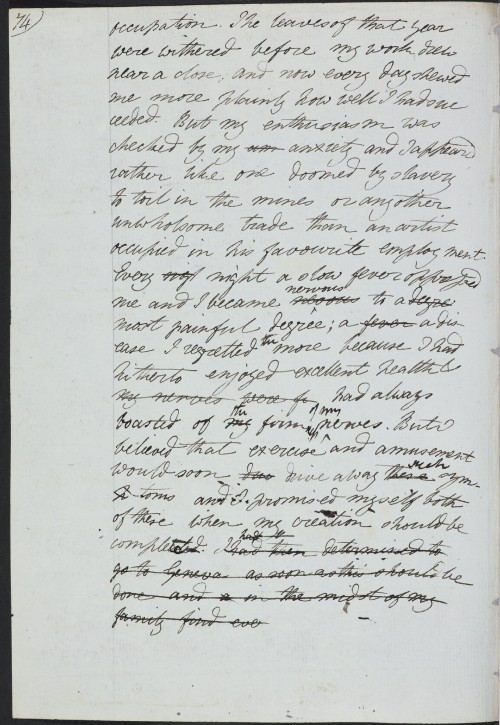 74)
occupation. The leaves of that year
were withered before my work drew
near a close; and now every day shewed
me more plainly how well I had suc
ceeded. But my enthusiasm was
checked by my anxiety and I appeared
rather like one doomed by slavery
to toil in the mines or any other
unwholsome trade than an artist
occupied in his favourite employment.
Every night a slow fever oppressed
me and I became nervous to a
most painful degree; a fever a dis-
ease I regretted the more because I had
hitherto enjoyed excellent health &
my nerves were had always
boasted of the my firmness of my nerves. But I
believed that exercise and amusement
would soon drive away these such symp-
toms and I promised myself both
of these when my creation should be
completed. I had then determined to
go to Geneva as soon as this should be
done and in the midst of my
family find ever